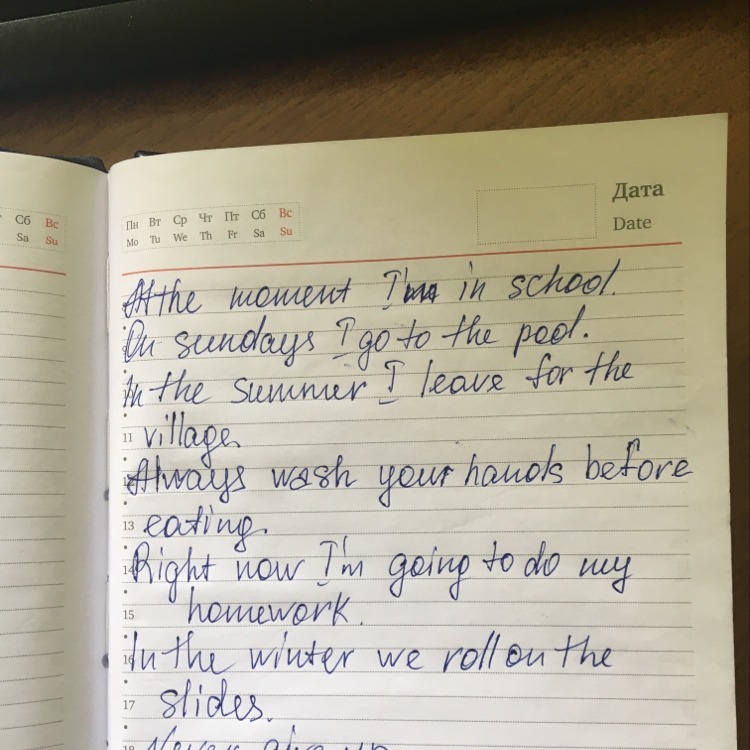 Сб Вс
Sa Su
Пн Вт Ср Чт Пт Сб Вс
Mo Tu We Th Fr Sa Su
Дата
Date
At the moment I'm in school.
On sundays I go to the pool.
In the summer I leave for the
11 village.
12 Always wash your hands before
13 eating.
14 Right now I'm going to do my
15 homework.
16 In the winter we roll on the
17 slides.
18 Never give up